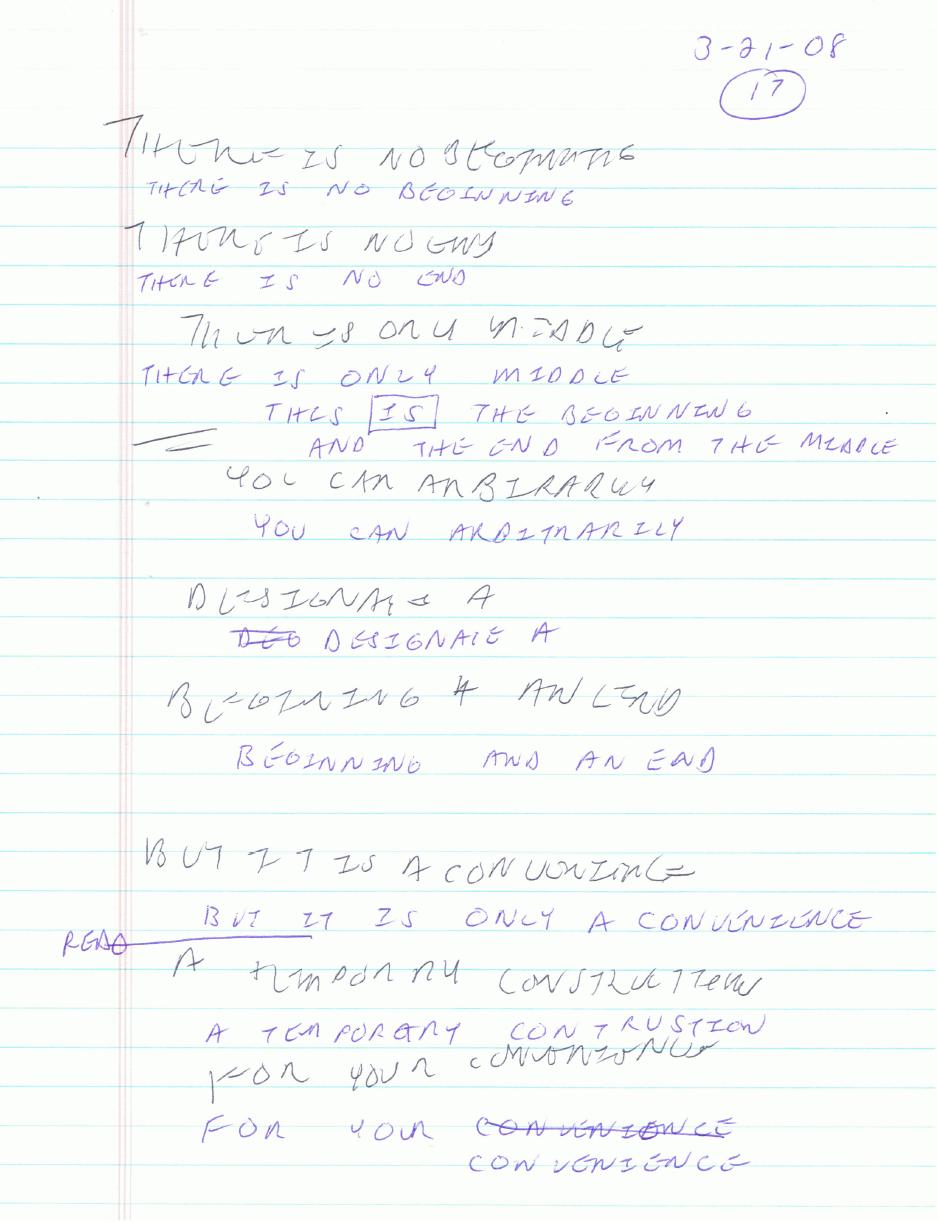 3-21-08
17
THERE IS NO BEGINNING
THERE IS NO BEGINNING
THERE IS NO END
THERE IS NO END
THER IS ONLY MIDDLE
THERE IS ONLY MIDDLE
THIS IS THE BEGINNING
AND THE END FROM THE MIDDLE
YOU CAN ARBIRARLY
YOU CAN ARBITRARILY
DESIGNATE A
DEO DESIGNATE A
BEGINING & AN END
BEGINNING AND AN END
BUT IT IS A CONVENIENCE
BUT IT IS ONLY A CONVENIENCE
READ
A TEMPORARY CONSTRUCTION
A TEMPORARY CONTRUSTION
FOR YOUR CONVENIENCE
FOR YOUR CONVENIENCE
CONVENIENCE